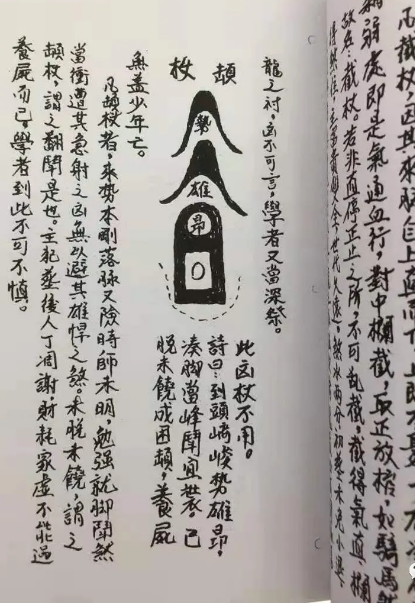 弱處即是氣通血行,對中欄截,取正放棺,如騎馬然
故名截杖。若非直停正止之所,不可亂截,截得氣直,欄
龍之衬,凶不可言,學者又當深察。
頓杖
勢
雄
昂
此凶杖不用。
詩曰:到頭崎嶮势雄昂,
凑脚當峰鬪宜。已
脱未饒成困頓,養屍
無益少年亡。
凡頓杖者,來势本剛落脉又險時師未明,勉强就脚鬪煞
當衝遭其急射之凶無以避其雄悍之煞。未脱未饒,謂之
頓杖,謂之翻鬪是也。主犯葬後人丁凋謝,財耗家虛不能過
養屍而已,學者到此不可不慎。